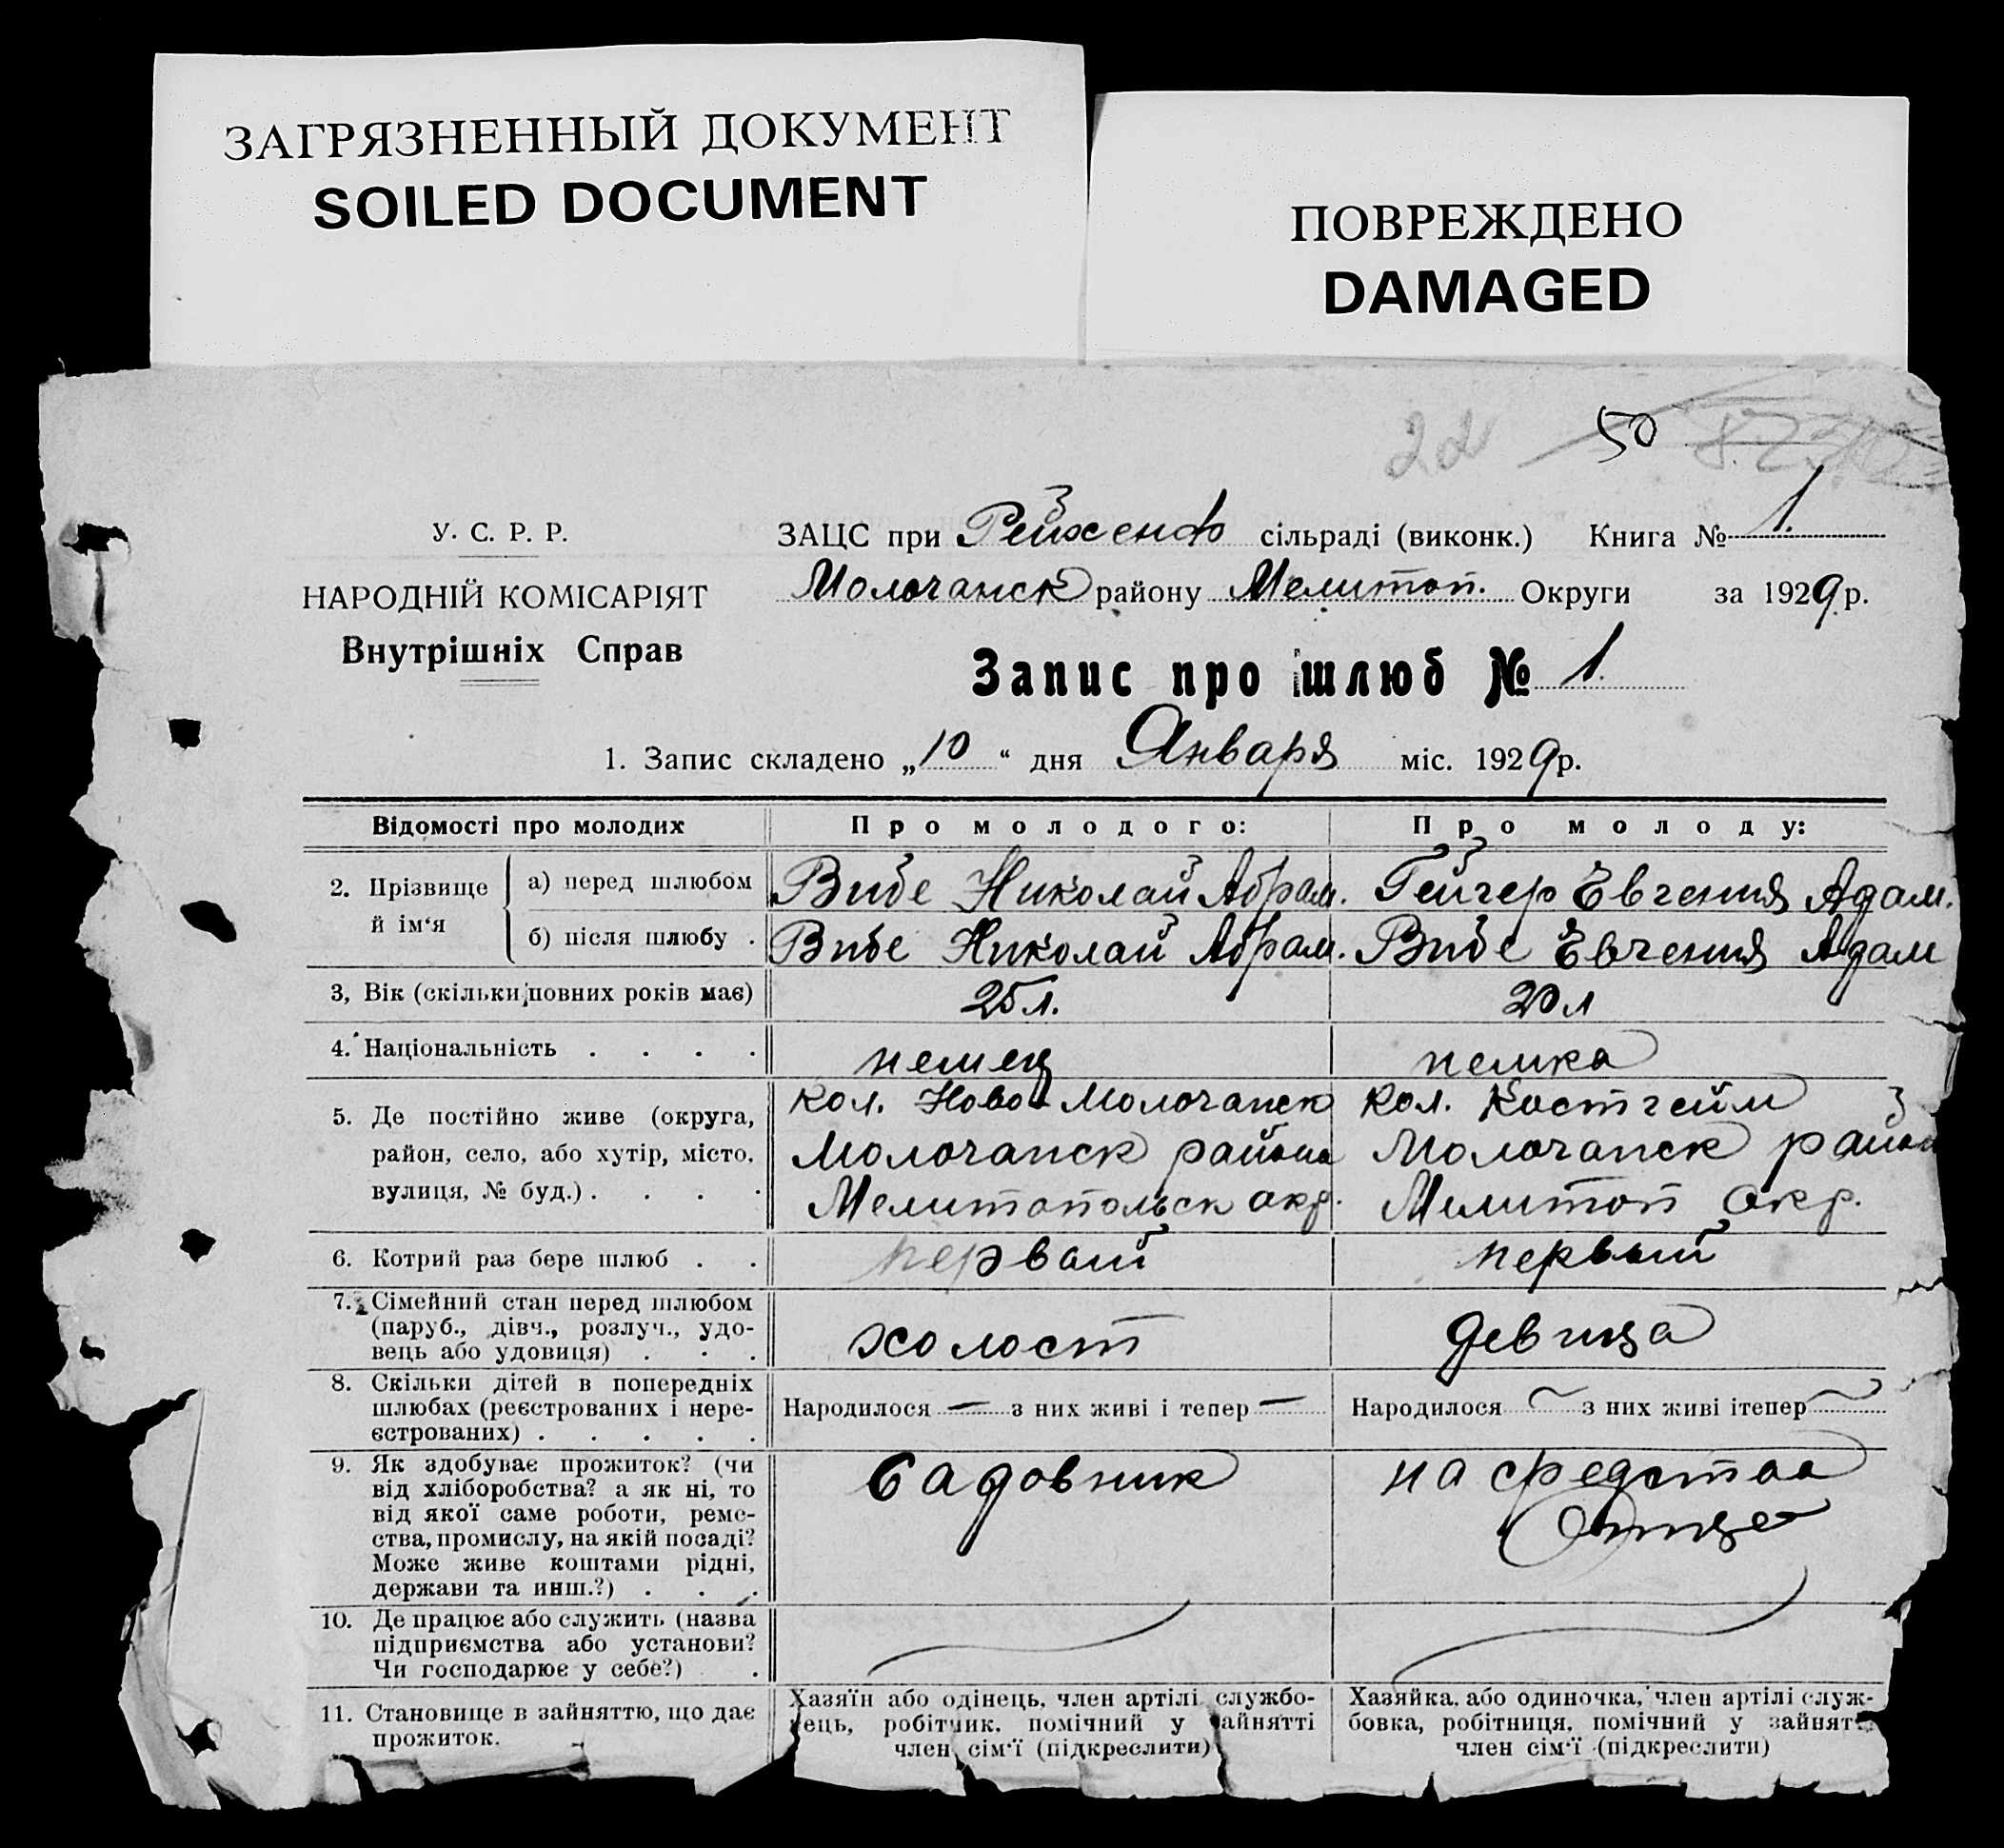 ЗАГРЯЗНЕННЫЙ ДОКУМЕНТ
SOILED DOCUMENT
ПОВРЕЖДЕНО
DAMAGED
22 50
У. С. Р. Р.
НАРОДНІЙ КОМІСАРІЯТ
Внутрішніх Справ
ЗАЦС при Рейхенф сільраді (виконк.) Книга № 1.
Молочанск району Мелитоп. Округи за 1929 р.
Запис про шлюб № 1.
1. Запис складено „10“ дня Января міс. 1929 р.
Відомості про молодих Про молодого: Про молоду:
2. Прізвище й ім‘я
а) перед шлюбом Вибе Николай Абрам. Гейгер Евгения Адам.
б) після шлюбу . Вибе Николай Абрам. Вибе Евгения Адам
3, Вік (скільки повних років має) 25 л. 20 л
4. Національність . . . . немец немка
5. Де постійно живе (округа, кол. Ново-Молочанск кол. Костгейм
район, село, або хутір, місто, Молочанск района Молочанск район
вулиця, № буд.) . . . . Мелитопольск окр. Мелитоп окр.
6. Котрий раз бере шлюб . . первый первый
7. Сімейний стан перед шлюбом
(паруб., дівч., розлуч., удо- холост девица
вець або удовиця) . . .
8. Скільки дітей в попередніх
шлюбах (реєстрованих і нере- Народилося — з них живі і тепер — Народилося ~ з них живі ітепер ~
єстрованих) . . . . .
9. Як здобуває прожиток? (чи садовник на средства
від хліборобства? а як ні, то Отца
від якої саме роботи, реме-
ства, промислу, на якій посаді?
Може живе коштами рідні,
держави та инш.?) . . .
10. Де працює або служить (назва
підприємства або установи?
Чи господарює у себе?) .
11. Становище в зайняттю, що дає
прожиток.
Хазяїн або одінець, член артілі службо-
вець, робітник, помічний у зайнятті
член сім‘ї (підкреслити)
Хазяйка, або одиночка, член артілі служ-
бовка, робітниця, помічний у зайнят
член сім‘ї (підкреслити)